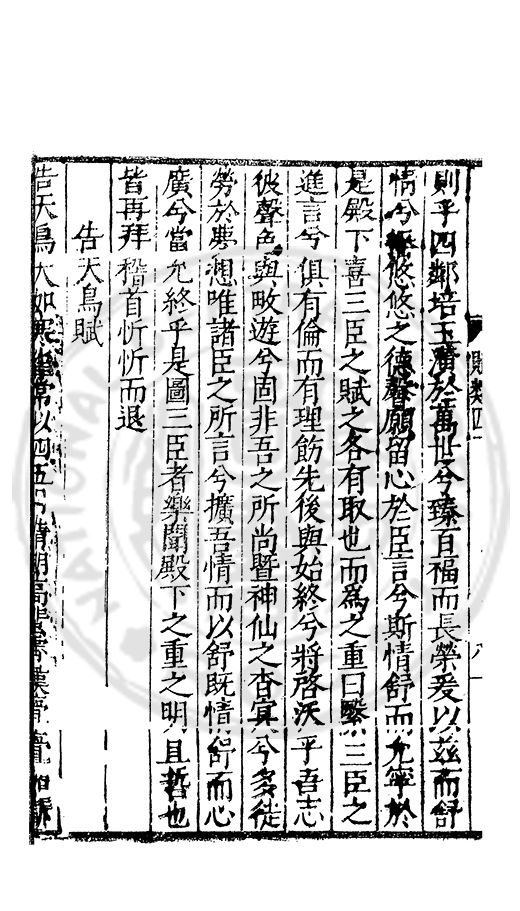 則乎四鄰培玉於萬世兮臻百福而長榮爰以茲而舒
情兮悠悠之德馨願留心於臣言兮斯情舒而允寧於
是殿下喜三臣之賦之各有取也而爲之重曰繄三臣之
進言兮俱有倫而有理飭先後與始終兮將啓沃乎吾志
彼聲色與畋遊兮固非吾之所尚曁神仙之杳冥兮多徒
勞於夢想唯諸臣之所言兮擴吾情而以舒既情舒而心
廣兮當允終乎是圖三臣者樂聞殿下之重之明且哲也
皆再拜稽首忻忻而退
告天鳥賦
告天鳥大如常以四五晴朝高